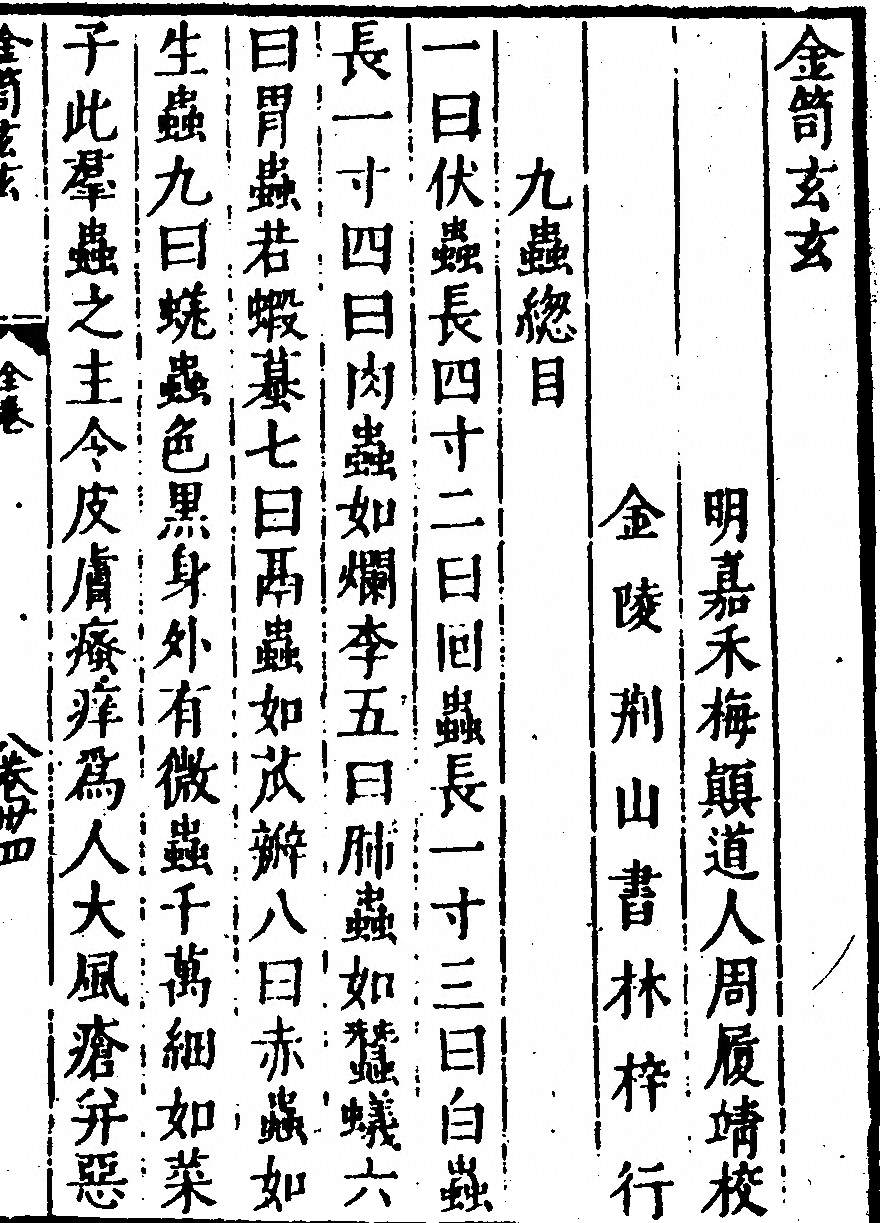 金笥玄玄
明嘉禾梅顛道人周履靖校
金陵荆山書林梓行
九蟲總目
一曰伏蟲長四寸二曰蛔蟲長一寸三曰白蟲
長一寸四曰肉蟲如爛李五曰肺蟲如蠶蟻六
曰胃蟲若蝦蟇七曰鬲蟲如苽瓣八曰赤蟲如
生蟲九曰蟯蟲色黑身外有微蟲千萬細如菜
子此羣蟲之主令皮膚瘙痒爲人大風瘡并惡
金笥玄玄
全卷
八卷卅四